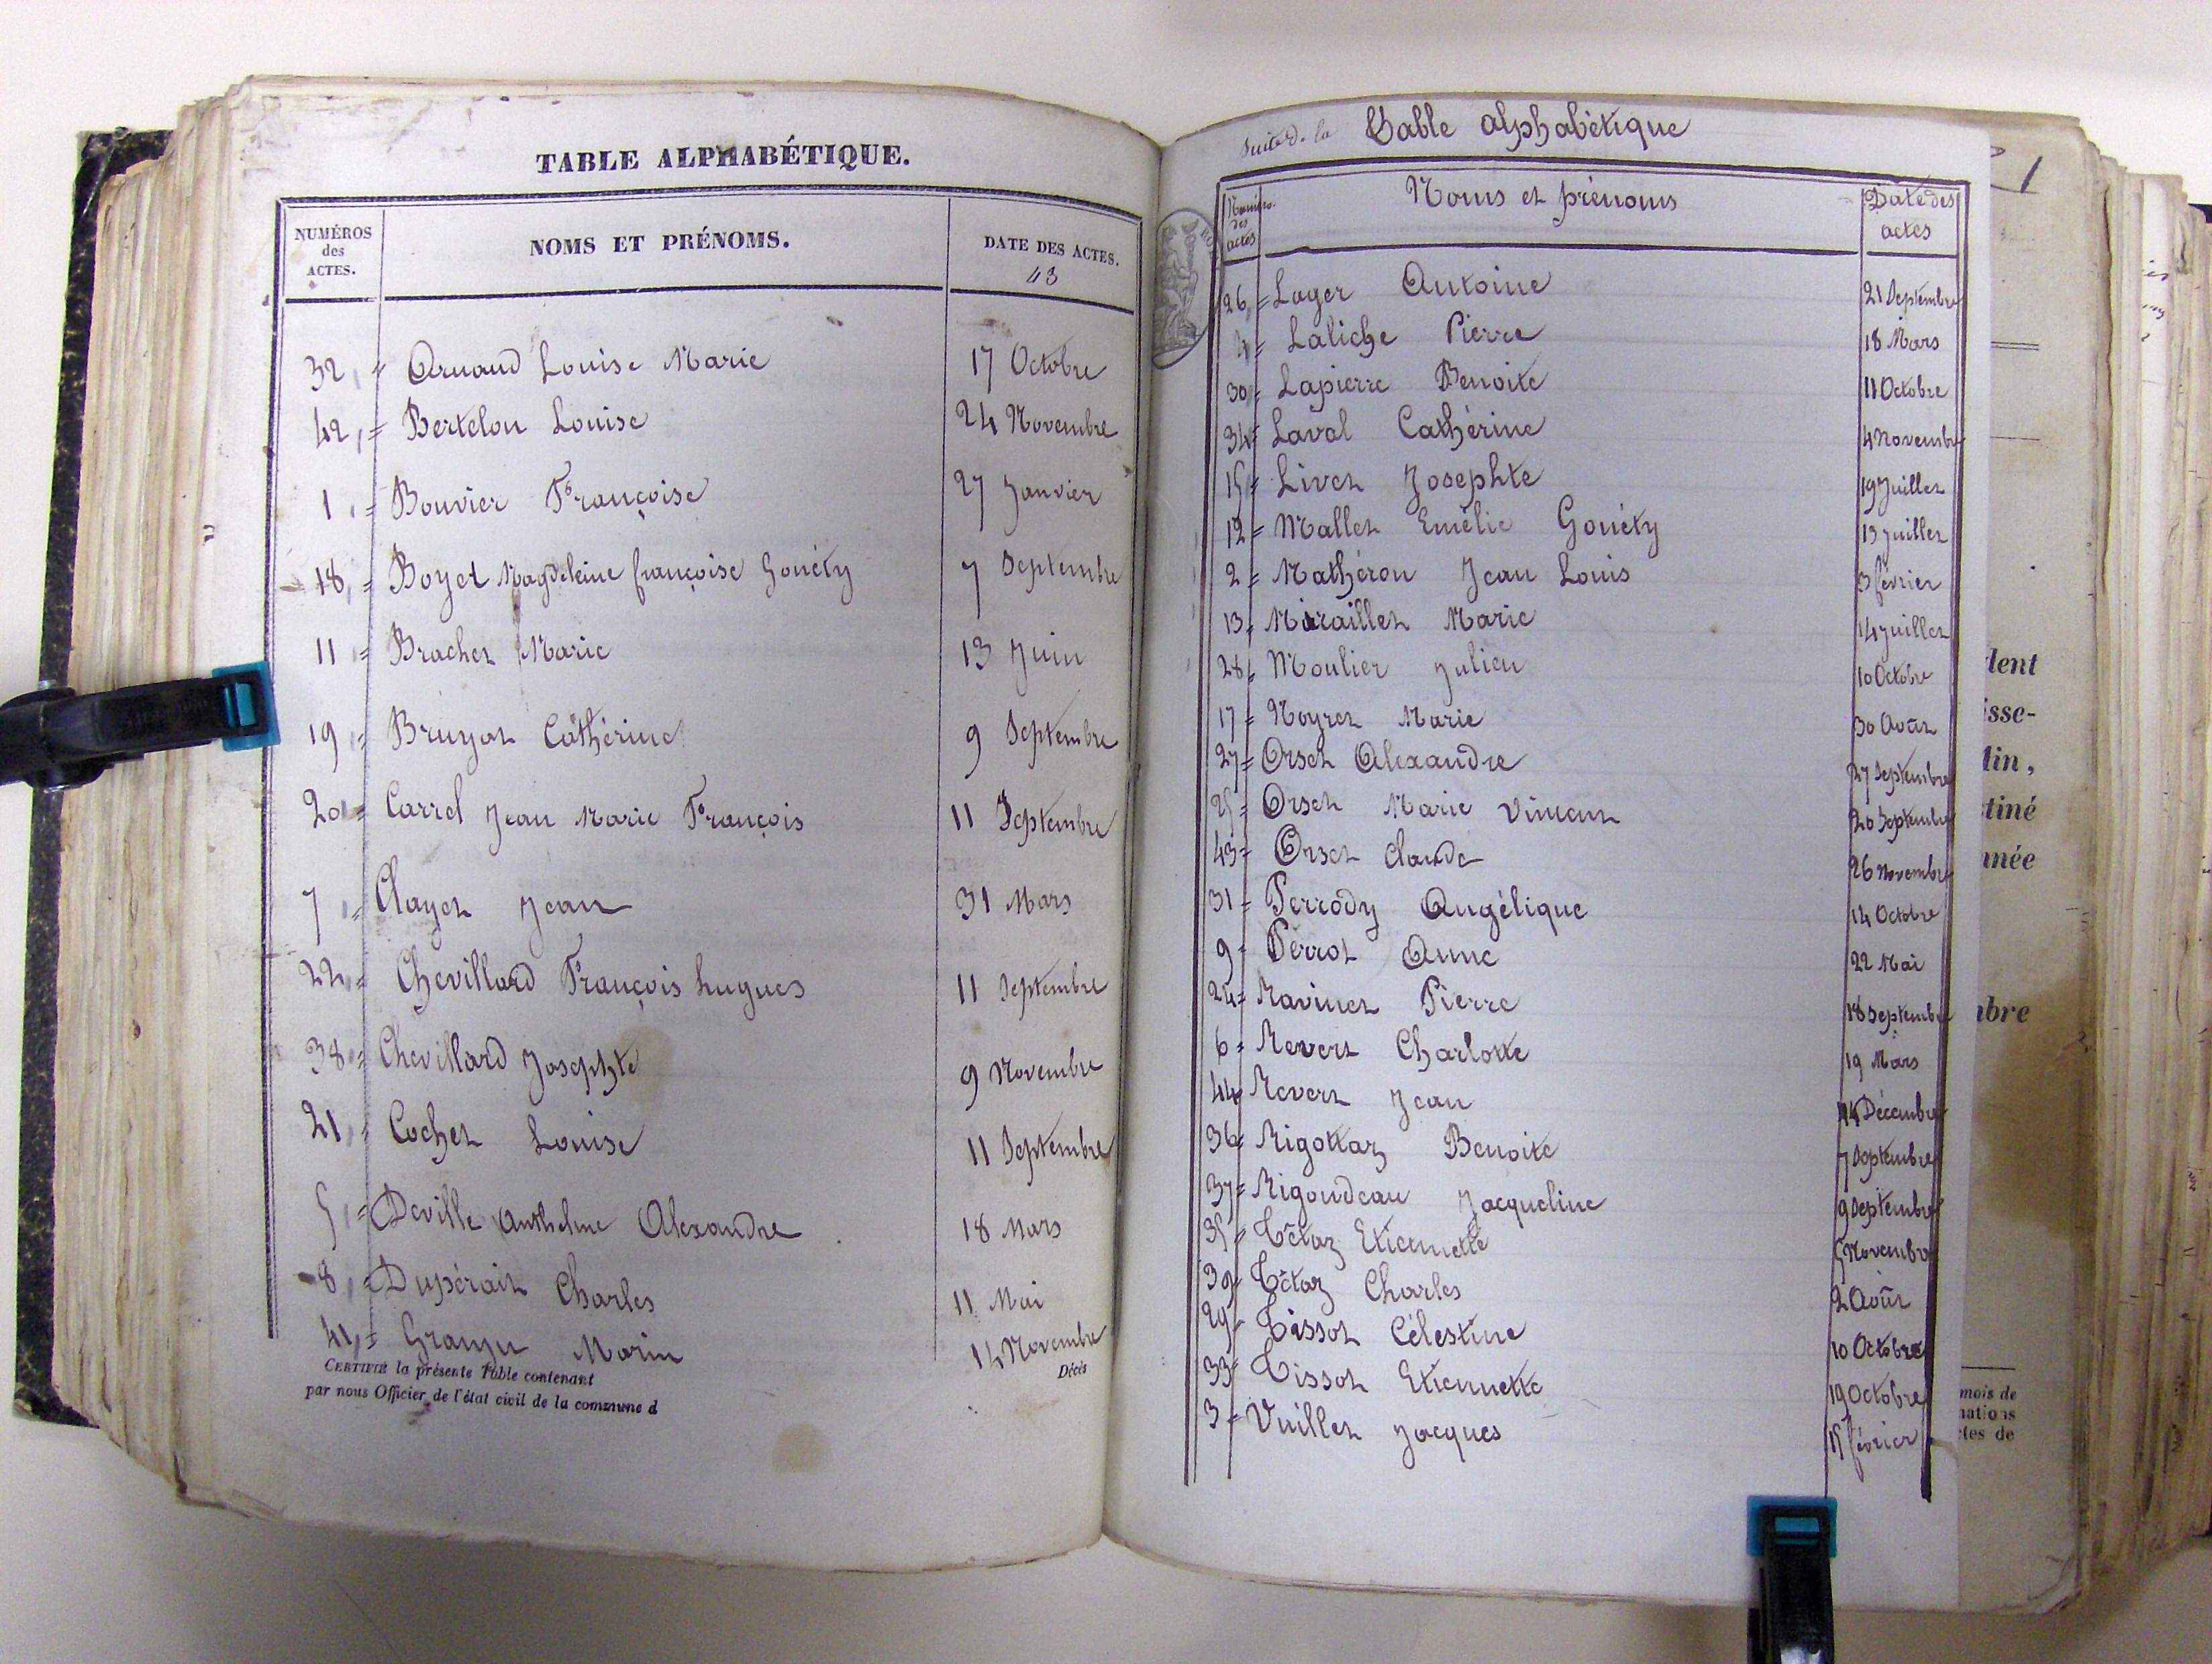 TABLE ALPHABÉTIQUE.
NUMÉROS des ACTES.
NOMS ET PRÉNOMS.
DATE DES ACTES.
43
32 = Arnaud Louise Marie 17 Octobre
42 = Bertelon Louise 24 Novembre
1 = Bouvier Françoise 27 Janvier
18 = Boyet Magdeleine françoise Gonéty 7 Septembre
11 = Brachet Marie 13 Juin
19 = Bruyat Cathérine 9 Septembre
20 = Carrel Jean Marie François 11 Septembre
7 = Clayet Jean 31 Mars
22 = Chevillard François hugues 11 Septembre
38 = Chevillard Josephte 9 Novembre
21 = Cochet Louise 11 Septembre
5 = Deville Anthelme Alexandre 18 Mars
8 = Dupérait Charles 11 Mai
41 = Marin 14 Novembre
CERTIFIÉ la présente Table contenant Décès
par nous Officier de l'état civil de la commune d
Suite de la Table alphabétique
Numéro des actes
Noms et prénoms
Date des actes
26 = Lager Antoine 21 Septembre
4 = Laliche Pierre 18 Mars
30 = Lapierre Benoite 11 Octobre
34 = Laval Cathérine 4 Novembre
15 = Livet Josephte 19 Juillet
12 = Mallet Emélie Gonéty 13 Juillet
2 = Mathéron Jean Louis 3 février
13 = Miraillet Marie 14 Juillet
28 = Moulier Julien 10 Octobre
17 = Noyret Marie 30 Août
27 = Orset Alexandre 27 Septembre
25 = Orset Marie Vincent 20 Septembre
43 = Orset Claude 26 Novembre
31 = Perrody Angélique 14 Octobre
9 = Perrot Anne 22 Mai
24 = Ravinet Pierre 18 Septembre
6 = Revert Charlotte 19 Mars
44 Revert Jean 14 Décembre
36 = Rigottaz Benoite 7 Septembre
37 = Rigoudeau Jacqueline 9 Septembre
35 = Tétaz Etiennette 5 Novembre
39 = Tétaz Charles 2 Août
29 = Tissot Célestine 10 Octobre
33 = Tissot Etiennette 19 Octobre
3 = Vuillet Jacques 15 février
dent
isse-
tin,
tiné
nnée
mbre
mois de
nations
ctes de